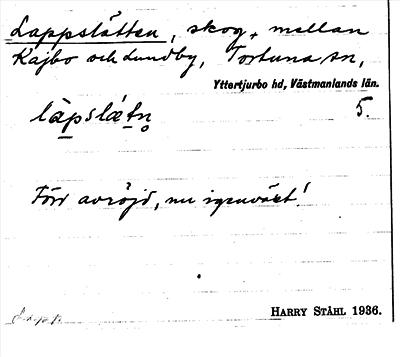 Lappslätten, skog, mellan
Kajbo och Lundby, Tortuna sn,
Yttertjurbo hd, Västmanlands län.
làpslǽtn̥ 5.
Förr avröjd, nu igenväxt!
HARRY STÅHL 1936.
Lapp.